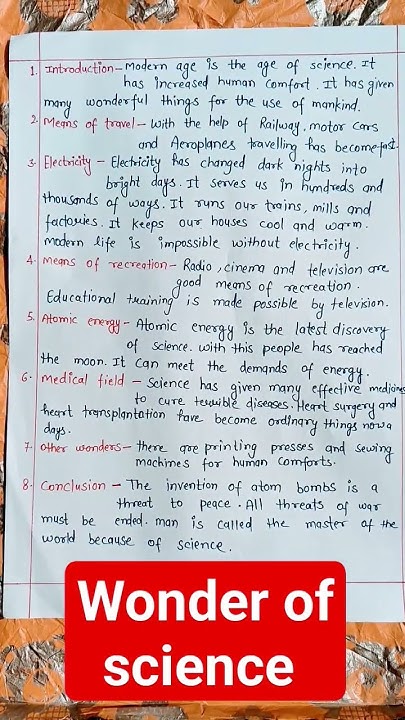 1. Introduction - Modern age is the age of science. It
has increased human comfort. It has given
many wonderful things for the use of mankind.
2. Means of travel - with the help of Railway, motor cars
and Aeroplanes travelling has become fast.
3. Electricity - Electricity has changed dark nights into
bright days. It serves us in hundreds and
thousands of ways. It runs our trains, mills and
factories. It keeps our houses cool and warm.
modern life is impossible without electricity.
4. Means of recreation - Radio, cinema and television are
good means of recreation.
Educational training is made possible by television.
5. Atomic energy - Atomic energy is the latest discovery
of science. with this people has reached
the moon. It can meet the demands of energy.
6. Medical field - Science has given many effective medicines
to cure terrible diseases. Heart surgery and
heart transplantation have become ordinary things now a
days.
7. Other wonders - there are printing presses and sewing
machines for human comforts.
8. Conclusion - The invention of atom bombs is a
threat to peace. All threats of war
must be ended. man is called the master of the
world because of science.
Wonder of
science